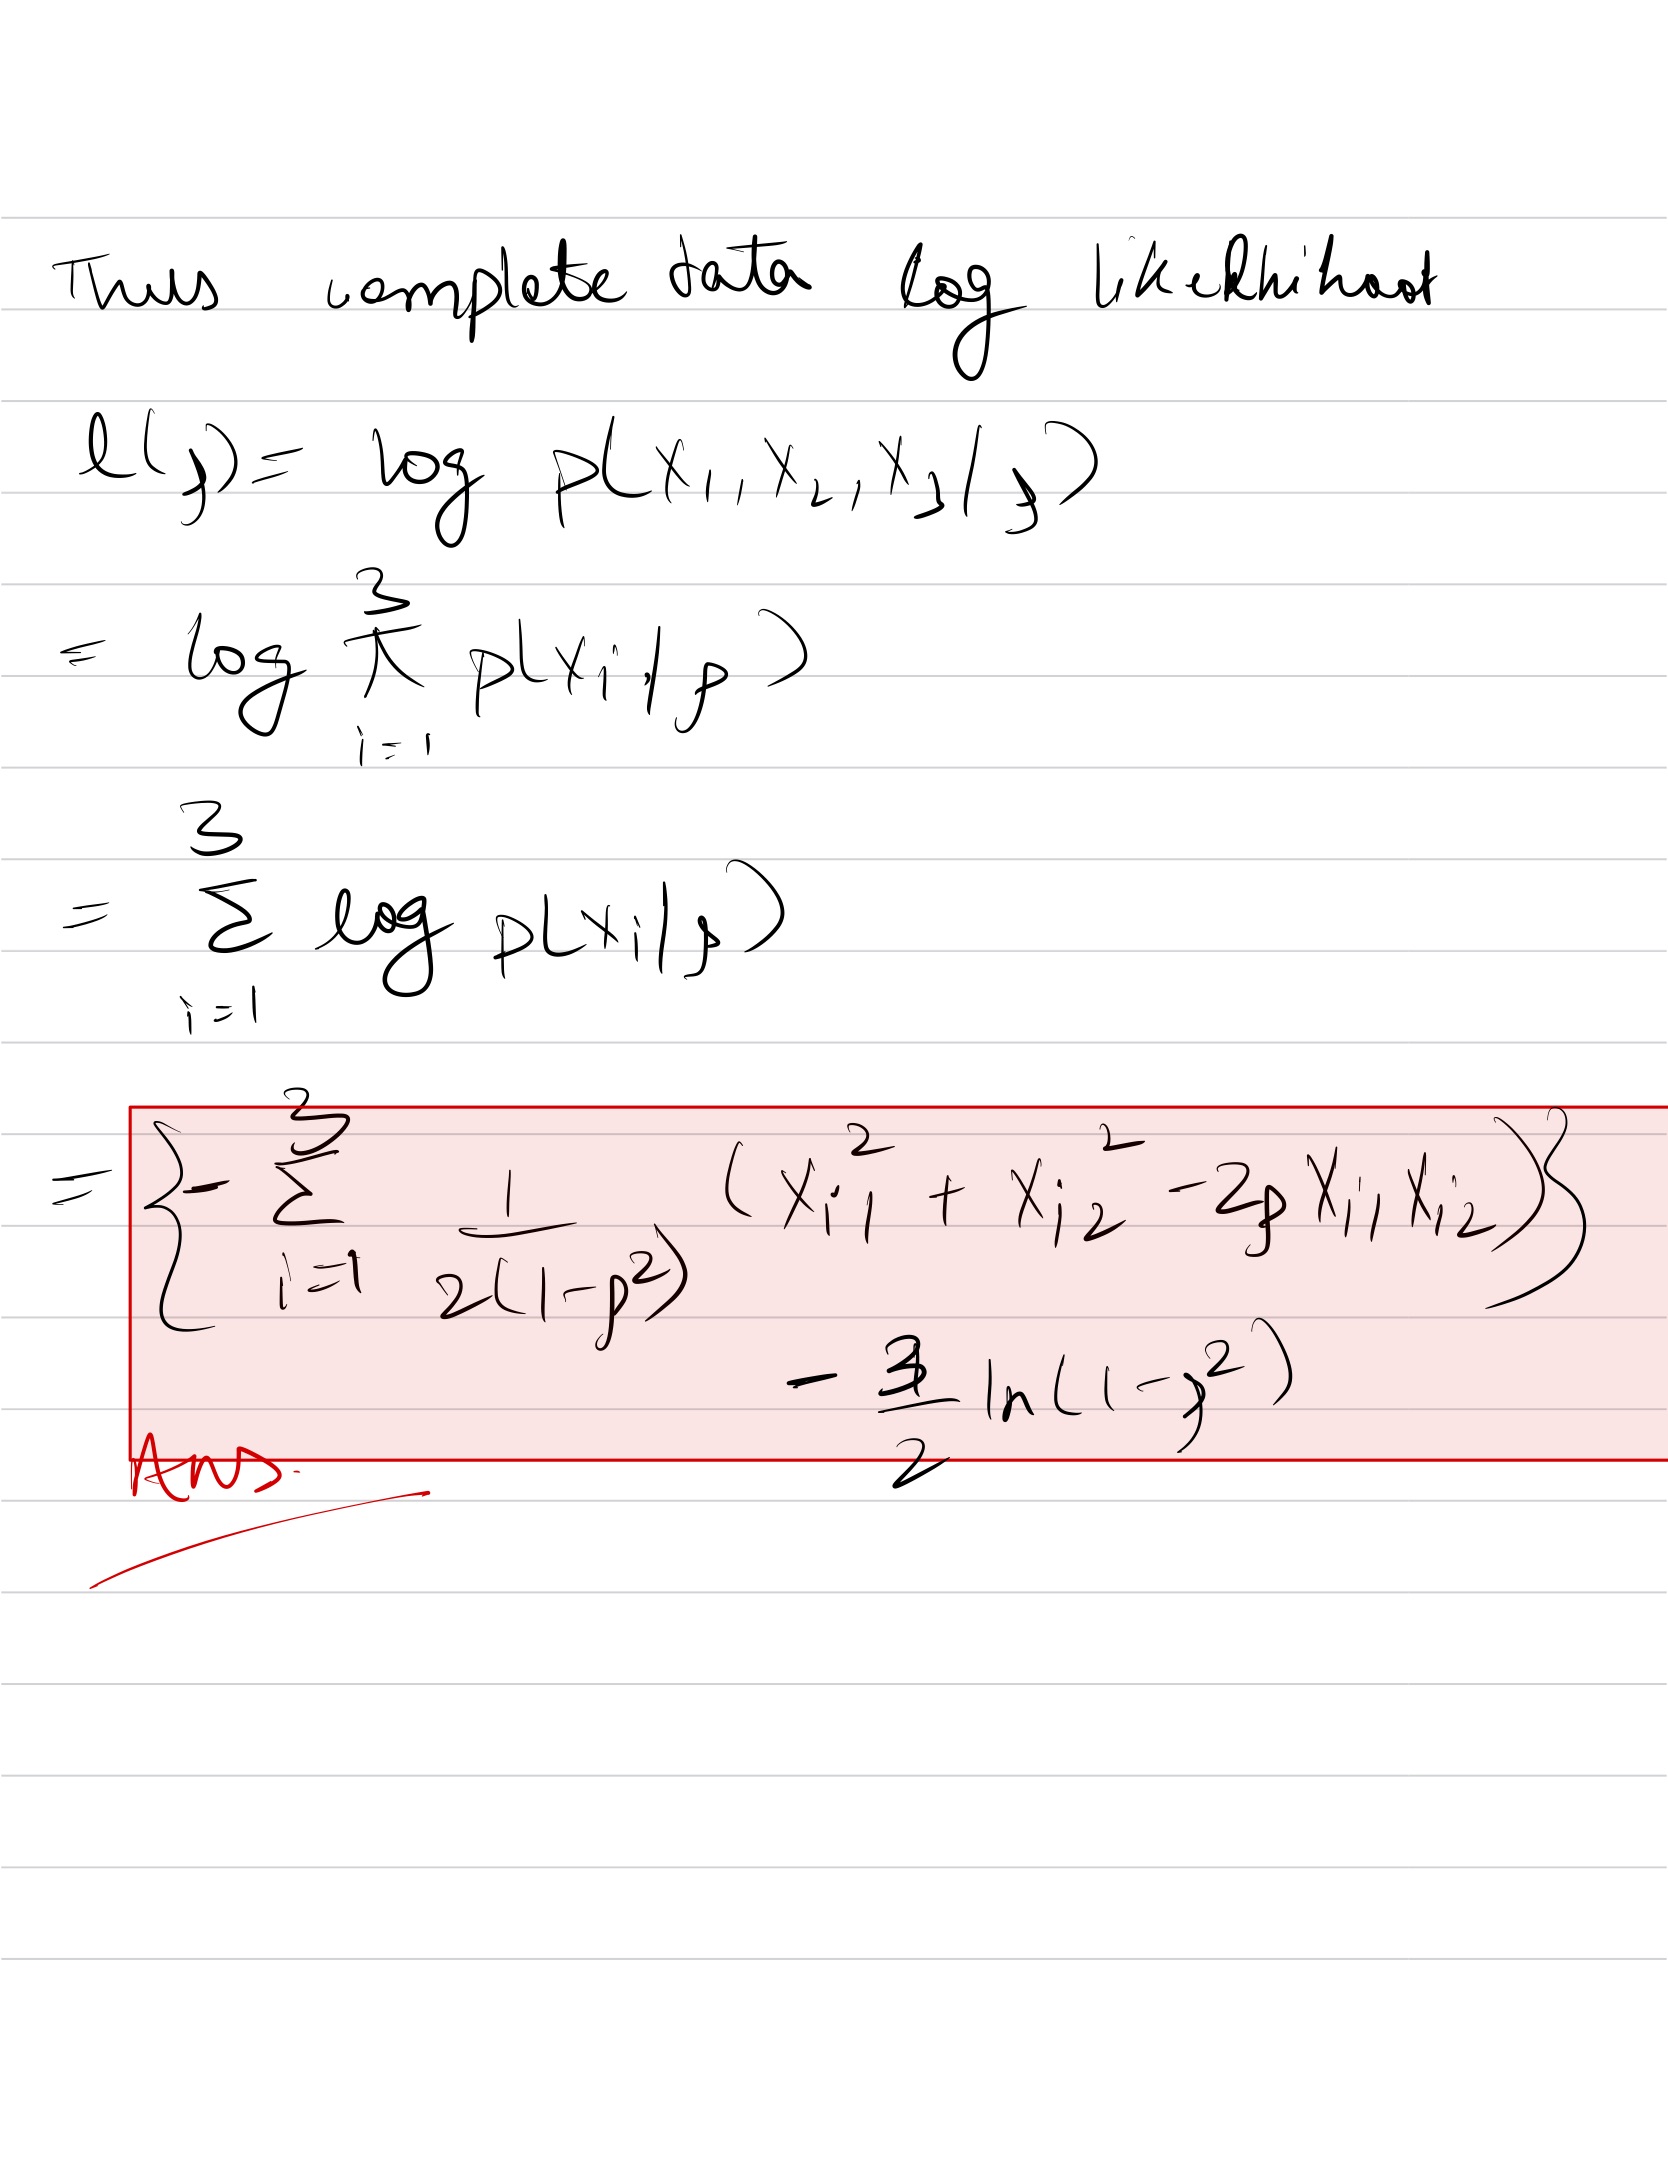 Thus complete data log likelihood
l(ρ) = log p(x₁, x₂, x₃ | ρ)
= log ∏_{i=1}^{3} p(xᵢ, | ρ)
= ∑_{i=1}^{3} log p(xᵢ | ρ)
= { - ∑_{i=1}^{3} 1/(2(1-ρ²)) (xᵢ₁² + xᵢ₂² - 2ρ xᵢ₁ xᵢ₂) }
- 3/2 ln(1-ρ²)
Ans.